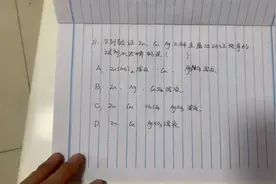 11. 下列验证 Zn、Cu、Ag 三种金属活动性顺序的
试剂
A. Zn(NO3)2溶液 Cu AgNO3溶液
B. Zn Ag CuSO4溶液
C. Zn Cu H2SO4 AgNO3溶液
D. Zn Cu AgNO3溶液